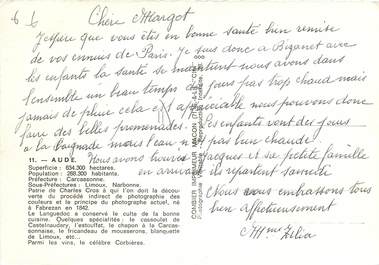 6 6
Chère Margot
J'espère que vous êtes en bonne santé bien remise
de vos ennuis de Paris. Je suis donc à Bizanet avec
les enfants la santé se maintient nous avons dans
l'ensemble un beau temps des jours pas trop chaud mais
jamais de pluie cela est appréciable nous pouvons donc
faire des belles promenades. Les enfants vont des jours
à la baignade mais l'eau n'est pas bien chaude.
Nous avons trouvé Jacques et sa petite famille
en arrivant ils repartent samedi
Nous vous embrassons tous
bien affectueusement
Mme Zélia
11. — AUDE.
Superficie : 634.300 hectares.
Population : 268.300 habitants.
Préfecture : Carcassonne.
Sous-Préfectures : Limoux, Narbonne.
Patrie de Charles Cros à qui l'on doit la découverte
du procédé indirect de photographie des
couleurs et le principe du phonographe actuel, né
à Fabrezan en 1842.
Le Languedoc a conservé le culte de la bonne
cuisine. Quelques spécialités : le cassoulet de
Castelnaudary, l'estouffet, le chapon à la Carcassonnaise,
le fricandeau de mousserons, blanquette
de Limoux, etc...
Parmi les vins, le célèbre Corbières.
COMBIER IMPRIMEUR MACON